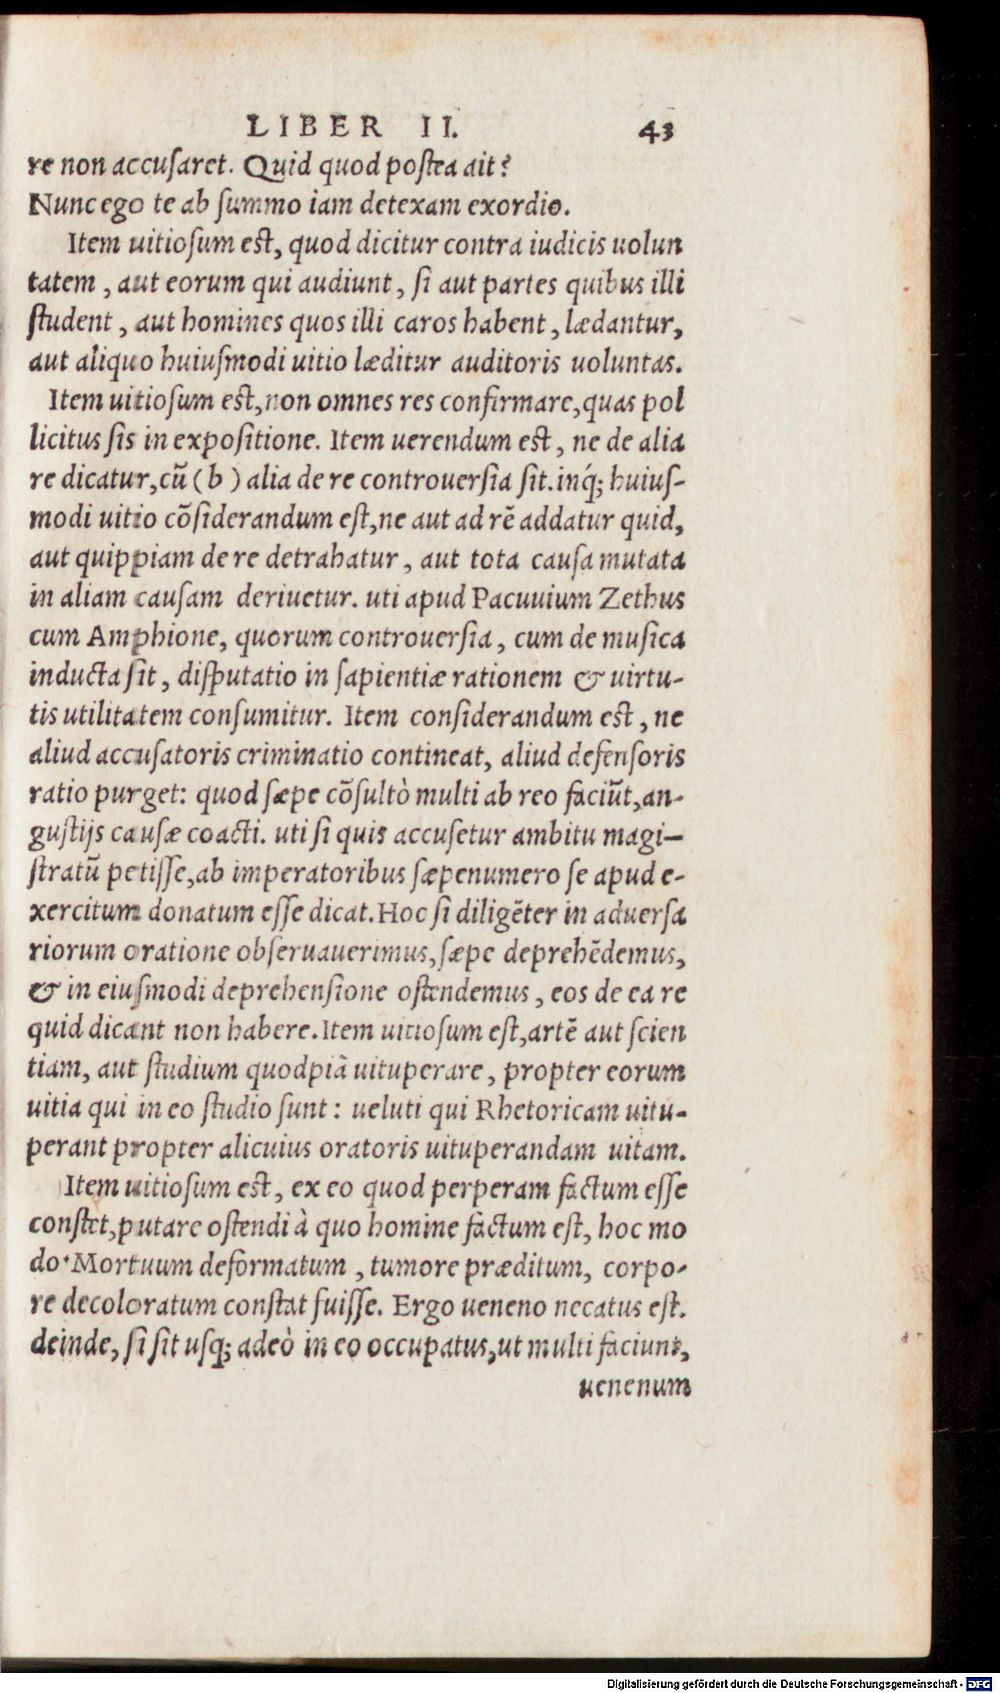 LIBER II. 43
re non accusaret. Quid quod postea ait?
Nunc ego te ab summo iam detexam exordio.
Item uitiosum est, quod dicitur contra iudicis uolun
tatem, aut eorum qui audiunt, si aut partes quibus illi
student, aut homines quos illi caros habent, lædantur,
aut aliquo huiusmodi uitio læditur auditoris uoluntas.
Item uitiosum est, non omnes res confirmare, quas pol
licitus sis in expositione. Item uerendum est, ne de alia
re dicatur, cū (b) alia de re controuersia sit. inq́; huius-
modi uitio cōsiderandum est, ne aut ad rē addatur quid,
aut quippiam de re detrahatur, aut tota causa mutata
in aliam causam deriuetur. uti apud Pacuuium Zethus
cum Amphione, quorum controuersia, cum de musica
inducta sit, disputatio in sapientiæ rationem & uirtu-
tis utilitatem consumitur. Item considerandum est, ne
aliud accusatoris criminatio contineat, aliud defensoris
ratio purget: quod sæpe cōsultò multi ab reo faciūt, an-
gustijs causæ coacti. uti si quis accusetur ambitu magi-
stratū petisse, ab imperatoribus sæpenumero se apud e-
xercitum donatum esse dicat. Hoc si diligēter in aduersa
riorum oratione obseruauerimus, sæpe deprehēdemus,
& in eiusmodi deprehensione ostendemus, eos de ea re
quid dicant non habere. Item uitiosum est, artē aut scien
tiam, aut studium quodpiā uituperare, propter eorum
uitia qui in eo studio sunt: ueluti qui Rhetoricam uitu-
perant propter alicuius oratoris uituperandam uitam.
Item uitiosum est, ex eo quod perperam factum esse
constet, putare ostendi à quo homine factum est, hoc mo
do· Mortuum deformatum, tumore præditum, corpo-
re decoloratum constat fuisse. Ergo ueneno necatus est.
deinde, si sit usq; adeò in eo occupatus, ut multi faciunt,
uenenum
Digitalisierung gefördert durch die Deutsche Forschungsgemeinschaft - DFG